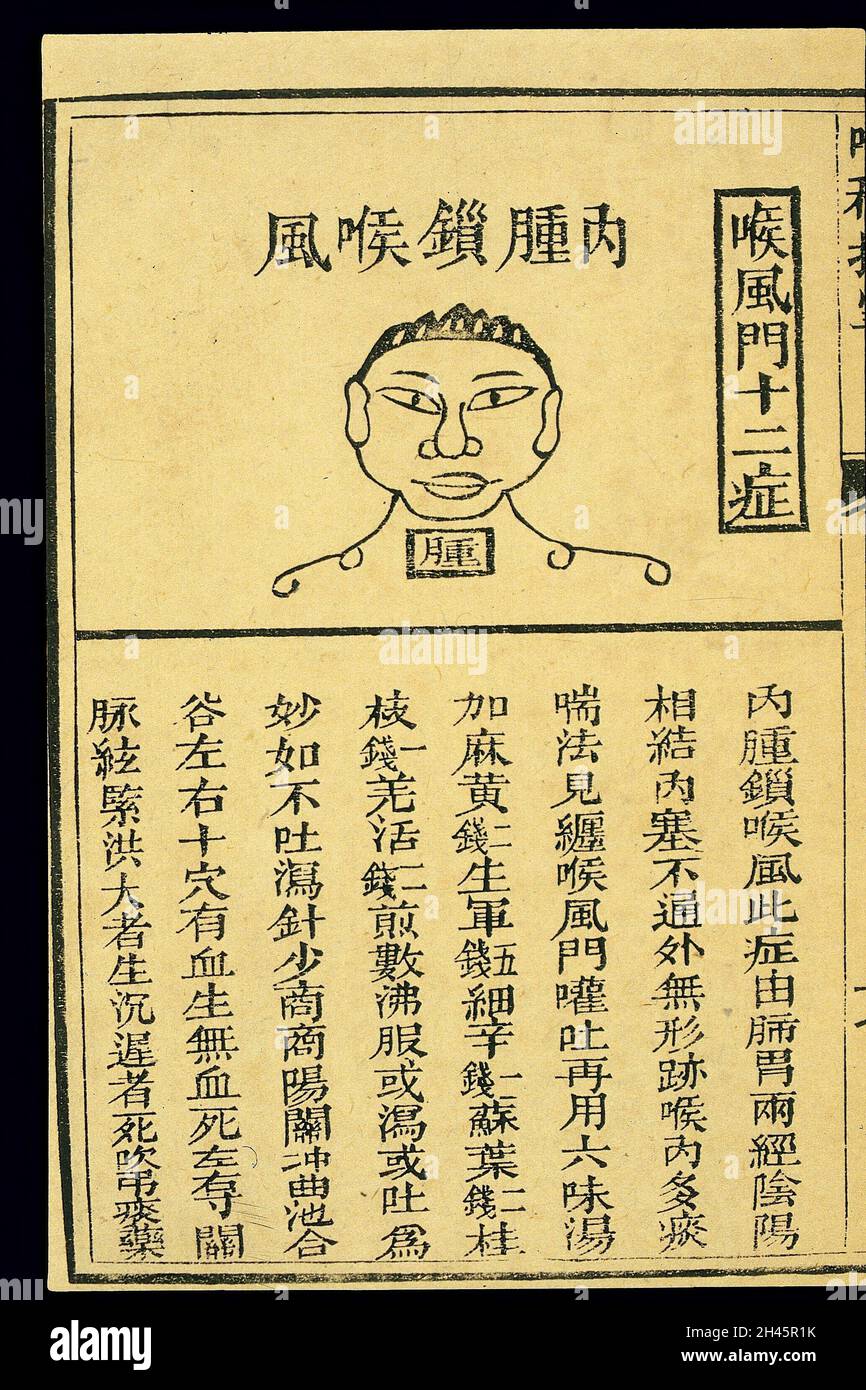 喉風門十二症
內腫鎖喉風
腫
內腫鎖喉風此症由肺胃兩經陰陽
相結內塞不通外無形跡喉內多痰
喘法見纏喉風門嚾吐再用六味湯
加麻黄二錢生軍五錢細辛一錢蘇葉二錢桂
枝一錢羌活二錢煎數沸服或瀉或吐爲
妙如不吐瀉針少商商陽關冲曲池合
谷左右十穴有血生無血死左右寸關
脉絃緊洪大者生沉遲者死吹弔痰藥
alamy
Image ID: 2H45R1K
www.alamy.com